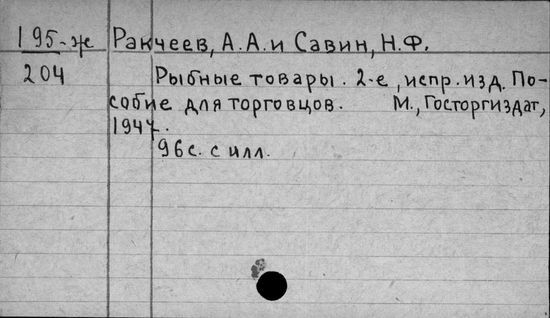 195-ж Ракчеев, А.А. и Савин, Н.Ф.
204 Рыбные товары. 2-е, испр. изд. По-
собие для торговцов. М., Госторгиздат,
1947.
96 с. с илл.